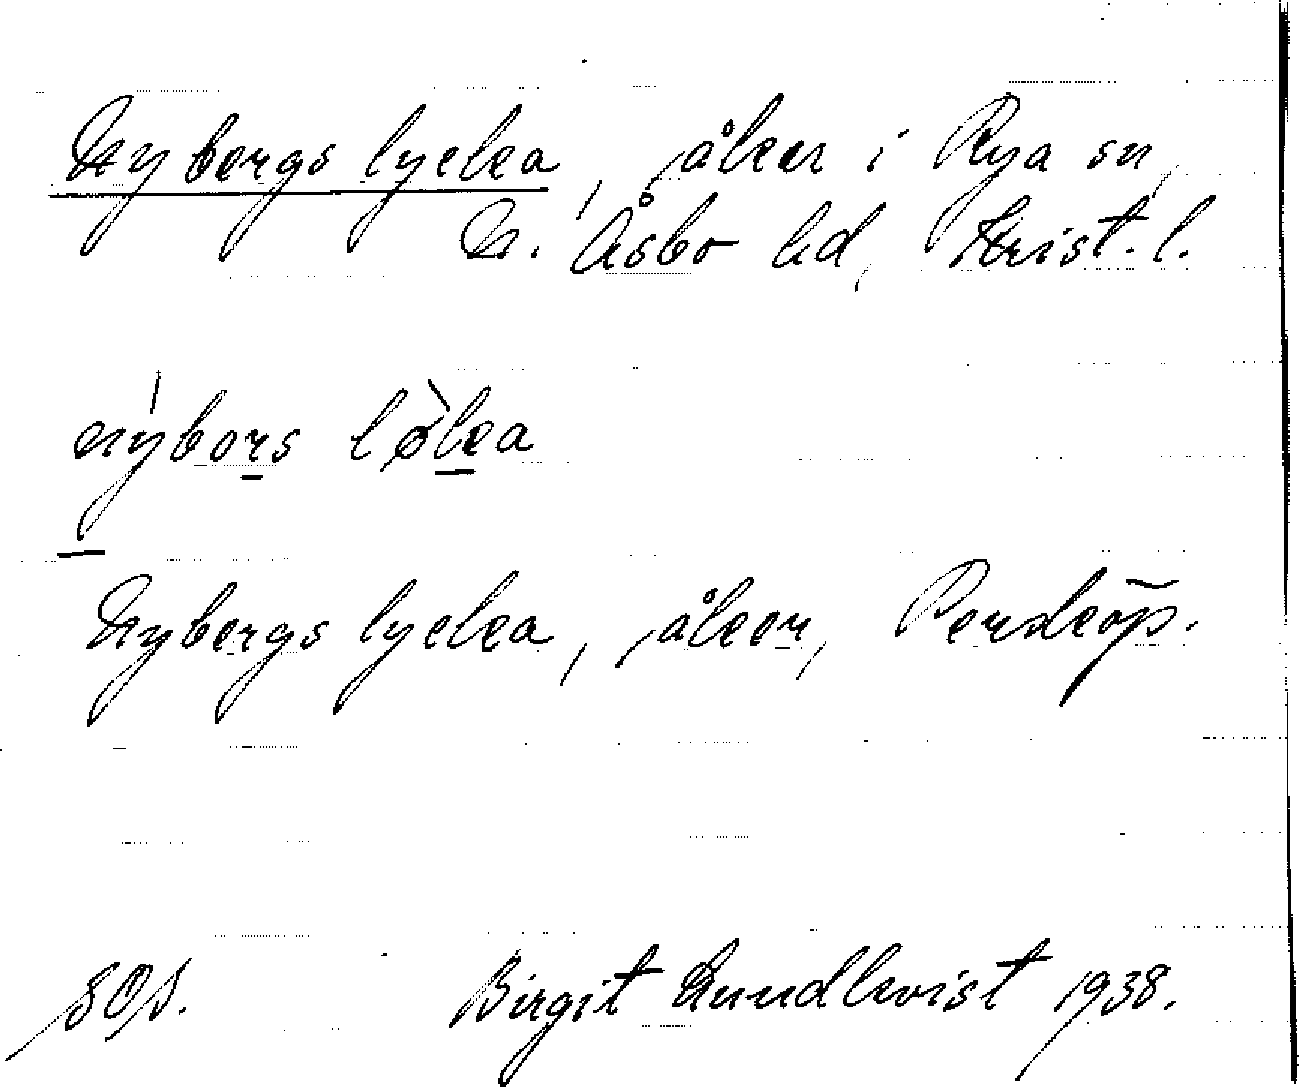 Nybergs lycka, åker i Rya sn,
N. Åsbo hd, Krist. l.
nýbors lø̀ka
Nybergs lycka, åker, Perstorp.
SOS. Birgit Lundkvist 1938.